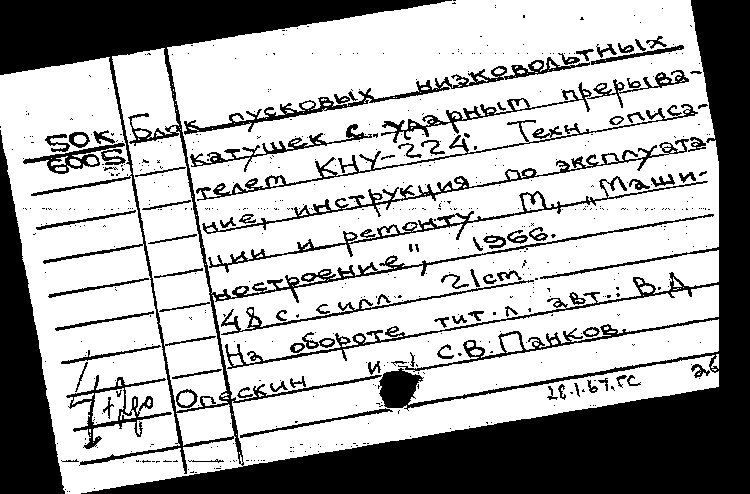 50К Блок пусковых низковольтных
6005 катушек с ударным прерыва-
телем КНУ-224. Техн. описа-
ние, инструкция по эксплуата-
ции и ремонту. М., „Маши-
ностроение", 1966.
48 с. силл. 21cm
На обороте тит. л. авт.: В.Д
Опескин и С.В. Панков.
28.1.67.ГС 26